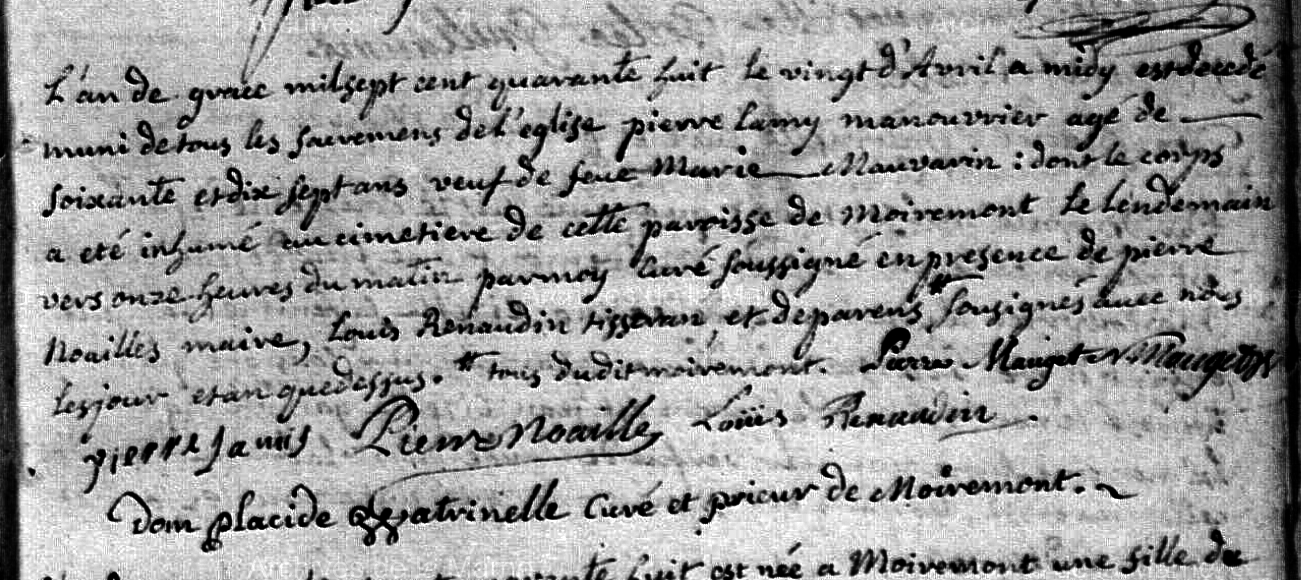 L'an de grace mil sept cent quarante huit le vingt d'Avril a midy est decedé
muni de tous les sacremens de l'eglise pierre Lamy manouvrier agé de
soixante et dix sept ans veuf de feue Marie Mauvarin : dont le corps
a eté inhumé au cimetiere de cette paroisse de Moiremont le lendemain
vers onze heures du matin par moy curé soussigné en presence de pierre
Noailles maire, Louis Renaudin tisseran et de parens # sousignés avec nous
les jour et an que dessus. # tous dudit moiremont. Pierre Mauget N Mauget
pierre Pierre Noaille Loüis Renaudin.
Dom placide curé et prieur de Moiremont.
huit est née a Moiremont une fille de